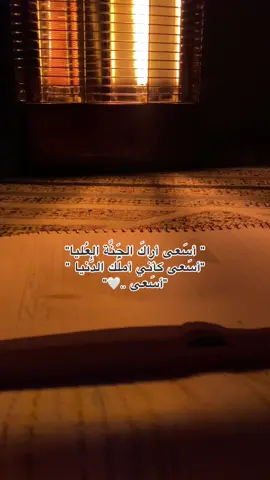 " أسَعى أراكَ الجَنَّة العُليا"
"أسَعى كأني أملَك الدُنيا "
"أسَعى ..🤍"